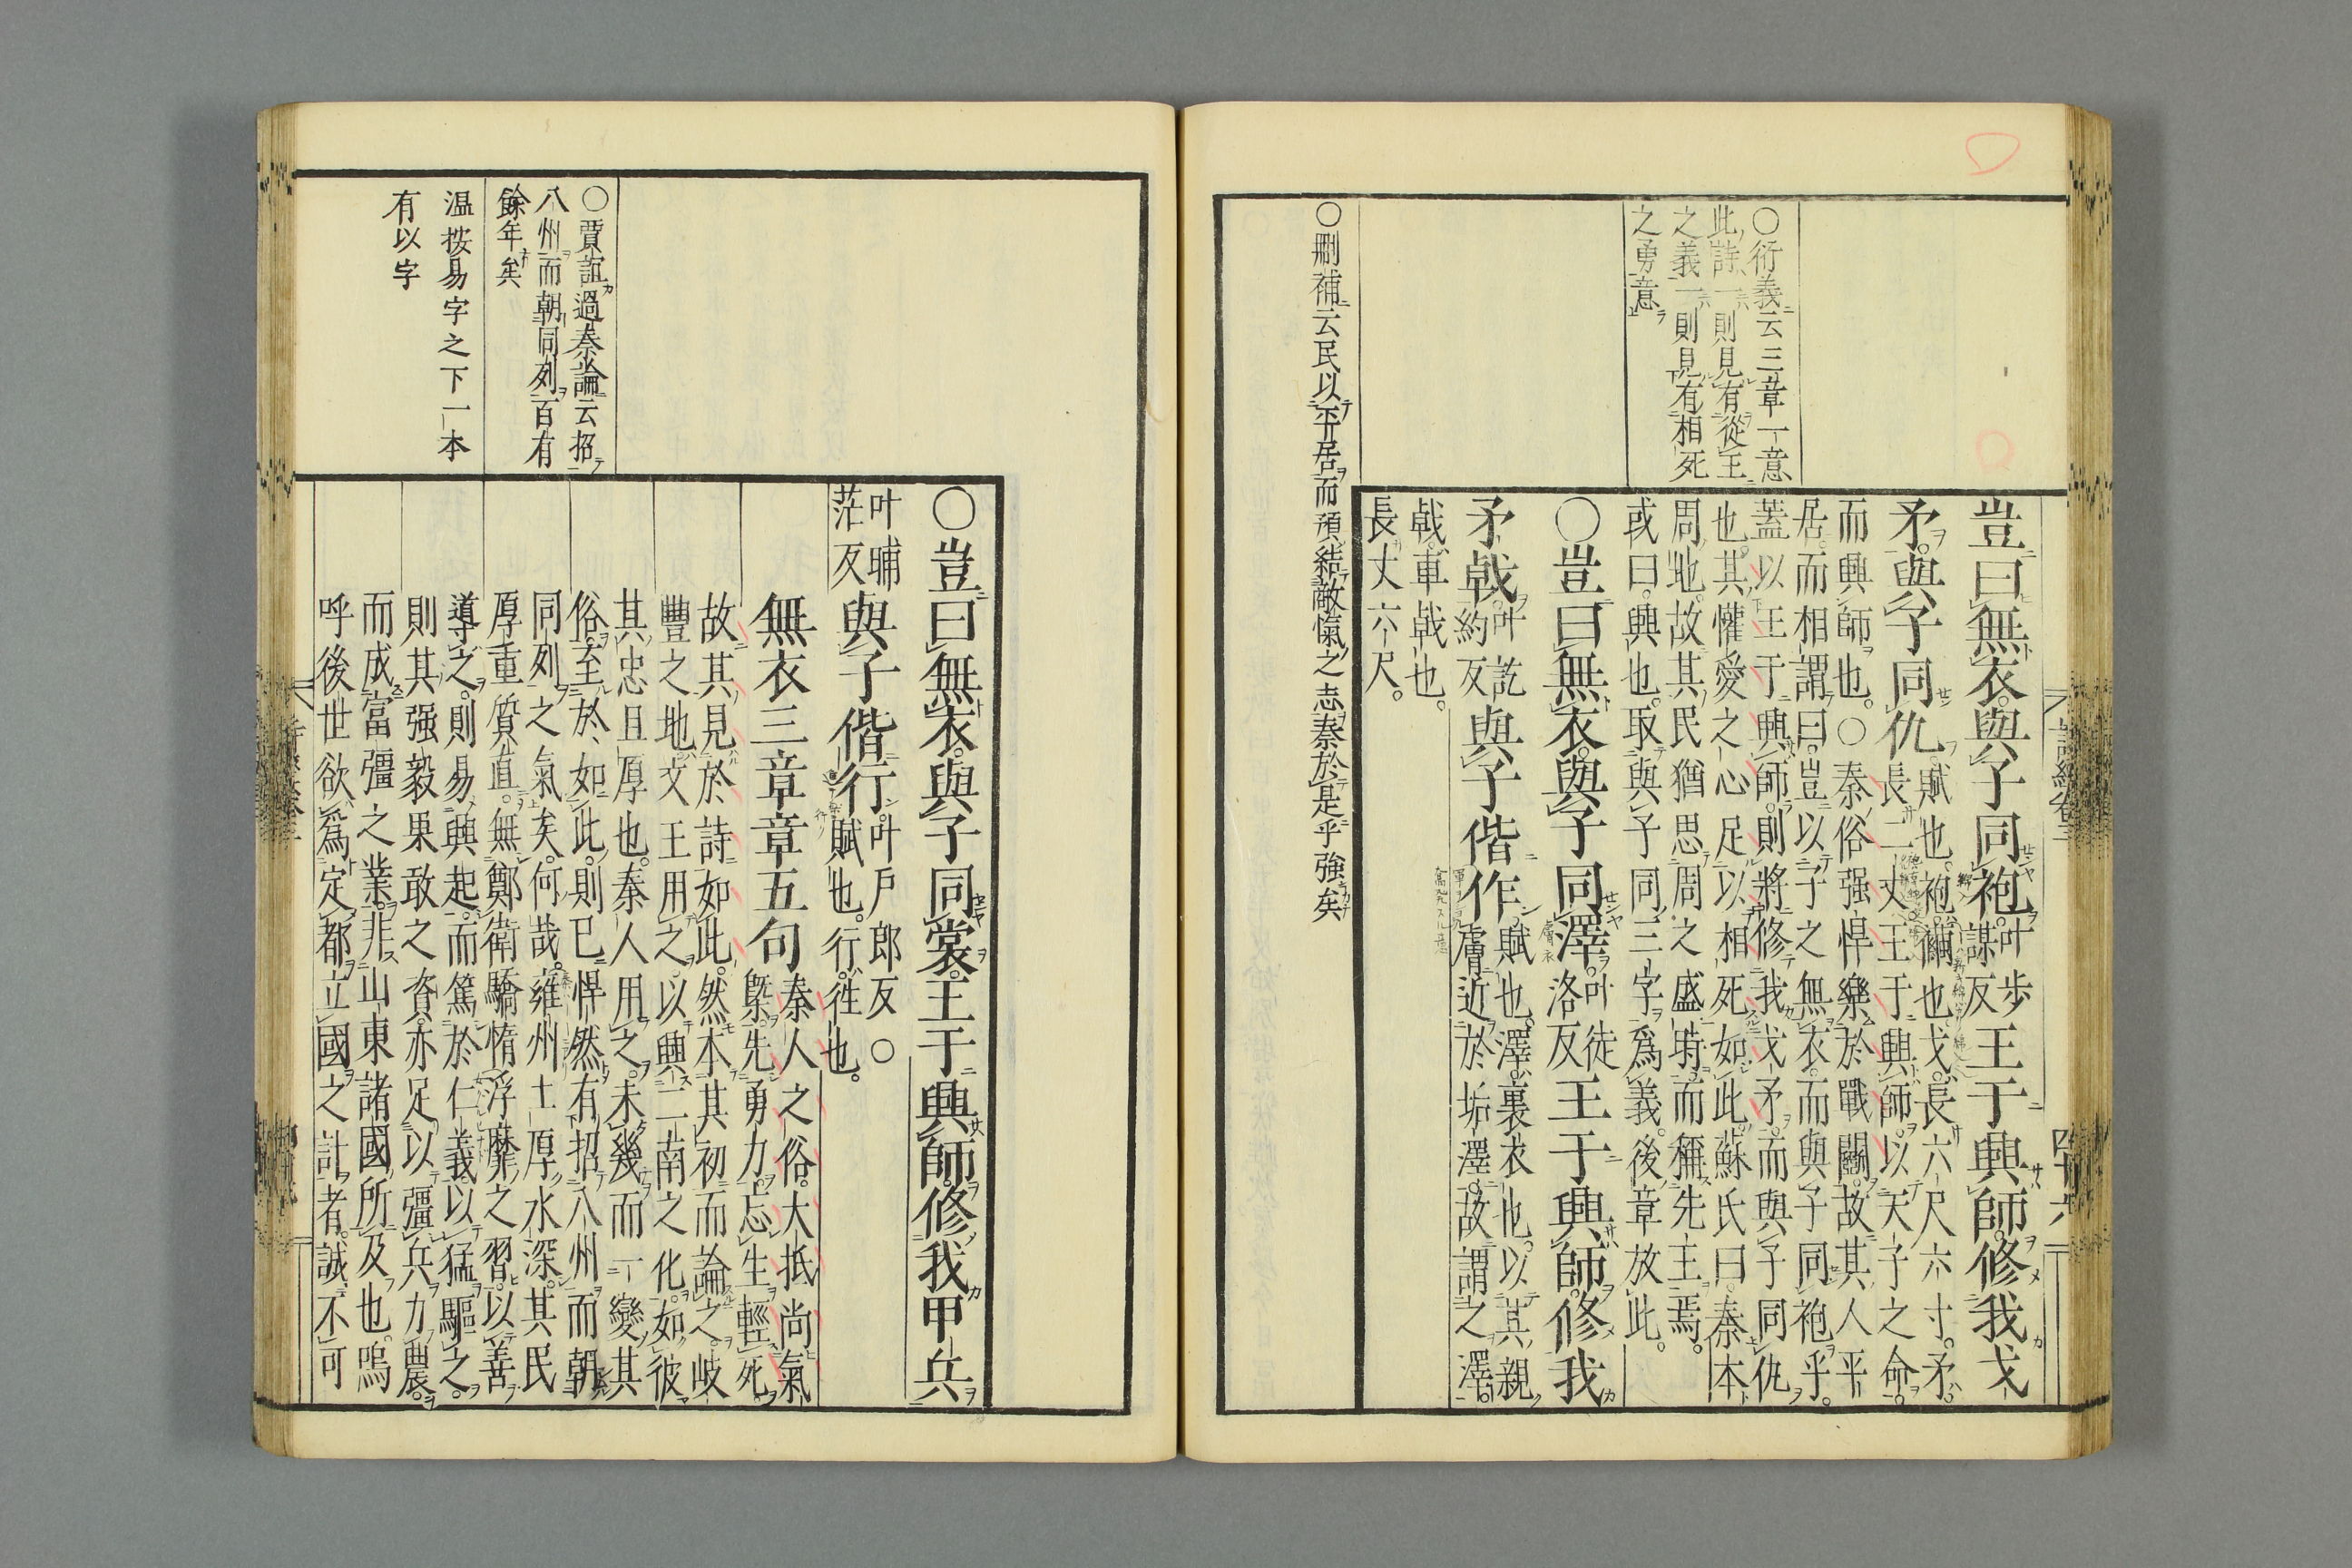 豈曰無衣與子同袍叶步謀反王于興師修我戈
矛與子同仇賦也袍襺也戈長六尺六寸矛長二丈王于興師以天子之命
而興師也○秦俗强悍樂於戰鬭故其人平
居而相謂曰豈以子之無衣而與子同袍乎
蓋以王于興師則將修我戈矛而與子同仇
也其懽愛之心足以相死如此蘇氏曰秦本
周地故其民猶思周之盛時而稱先王焉
或曰興也取與子同三字爲義後章放此
○豈曰無衣與子同澤叶徒洛反王于興師修我
矛戟叶訖約反與子偕作賦也澤裏衣也以其親膚近於垢澤故謂之澤
戟車戟也
長丈六尺
○衍義云三章一意
此詩一則見有從王
之義一則見有相死
之勇意
○刪補云民以平居而預結敵愾之志秦於是乎強矣
○豈曰無衣與子同裳王于興師修我甲兵
叶晡茫反與子偕行叶戶郎反○賦也行往也
無衣三章章五句
秦人之俗大抵尚氣
槩先勇力忘生輕死
故其見於詩如此然本其初而論之岐
豐之地文王用之以興二南之化如彼
其忠且厚也秦人用之未幾而一變其
俗至於如此則已悍然有招八州而朝
同列之氣矣何哉雍州土厚水深其民
厚重質直無鄭衛驕惰浮靡之習以善
導之則易興起而篤於仁義以猛驅之
則其强毅果敢之資亦足以彊兵力農
而成富彊之業非山東諸國所及也嗚
呼後世欲爲定都立國之計者誠不可
○賈誼過秦論云招
八州而朝同列百有
餘年矣
温按易字之下一本
有以字